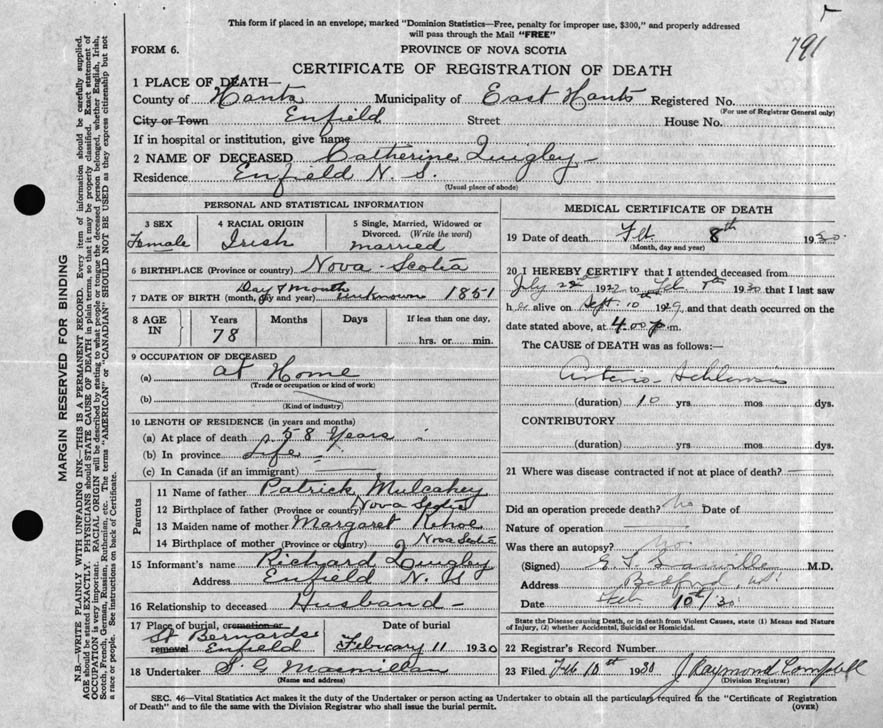 This form if placed in an envelope, marked "Dominion Statistics—Free, penalty for improper use, $300," and properly addressed
will pass through the Mail "FREE"
791
FORM 6.
PROVINCE OF NOVA SCOTIA
CERTIFICATE OF REGISTRATION OF DEATH
1 PLACE OF DEATH—
County of Hants Municipality of East Hants Registered No.
(For use of Registrar General only)
City or Town Enfield Street House No.
If in hospital or institution, give name
2 NAME OF DECEASED Catherine Quigley
Residence Enfield N. S.
(Usual place of abode)
PERSONAL AND STATISTICAL INFORMATION
3 SEX 4 RACIAL ORIGIN 5 Single, Married, Widowed or
Divorced. (Write the word)
Female Irish married
6 BIRTHPLACE (Province or country) Nova Scotia
Day & month
7 DATE OF BIRTH (month, day and year) unknown 1851
8 AGE IN Years Months Days If less than one day,
78 hrs. or min.
9 OCCUPATION OF DECEASED
(a) at Home
(Trade or occupation or kind of work)
(b)
(Kind of industry)
10 LENGTH OF RESIDENCE (in years and months)
(a) At place of death 58 Years
(b) In province Life
(c) In Canada (if an immigrant)
Parents
11 Name of father Patrick Mulcahey
12 Birthplace of father (Province or country) Nova Scotia
13 Maiden name of mother Margaret Kehoe
14 Birthplace of mother (Province or country) Nova Scotia
15 Informant's name Richard Quigley
Address Enfield N. S
16 Relationship to deceased Husband
17 Place of burial, cremation or removal Date of burial
St Bernards
Enfield February 11 1930
18 Undertaker S. G. Macmillan
(Name and address)
MEDICAL CERTIFICATE OF DEATH
19 Date of death Feb 8th 1930
(Month, day and year)
20 I HEREBY CERTIFY that I attended deceased from
July 22nd 1922 to Feb 8th 1930 that I last saw
her alive on Sept. 10th 1929, and that death occurred on the
date stated above, at 4.00 p.m.
The CAUSE OF DEATH was as follows:—
Arterio-Schlerosis
(duration) 10 yrs mos dys.
CONTRIBUTORY
(duration) yrs. mos dys.
21 Where was disease contracted if not at place of death?
Did an operation precede death? No Date of
Nature of operation
Was there an autopsy? No
(Signed) M.D.
Address Bedford, N.S.
Date Feb 10th/30
State the Disease causing Death, or in death from Violent Causes, state (1) Means and Nature
of Injury, (2) whether Accidental, Suicidal or Homicidal.
22 Registrar's Record Number
23 Filed Feb 10th 1930 J Raymond Campbell
(Division Registrar)
SEC. 46—Vital Statistics Act makes it the duty of the Undertaker or person acting as Undertaker to obtain all the particulars required in the "Certificate of Registration
of Death" and to file the same with the Division Registrar who shall issue the burial permit. (OVER)
MARGIN RESERVED FOR BINDING
N.B.—WRITE PLAINLY WITH UNFADING INK—THIS IS A PERMANENT RECORD. Every item of information should be carefully supplied.
AGE should be stated EXACTLY. PHYSICIANS should STATE CAUSE OF DEATH in plain terms, so that it may be properly classified. Exact statement of
OCCUPATION is very important. RACIAL ORIGIN will be described by stating to what people or tongue the deceased person belonged, whether English, Irish,
Scotch, French, German, Russian, Ruthenian, etc. The terms "AMERICAN" or "CANADIAN" SHOULD NOT BE USED as they express citizenship but not
a race or people. See instructions on back of Certificate.